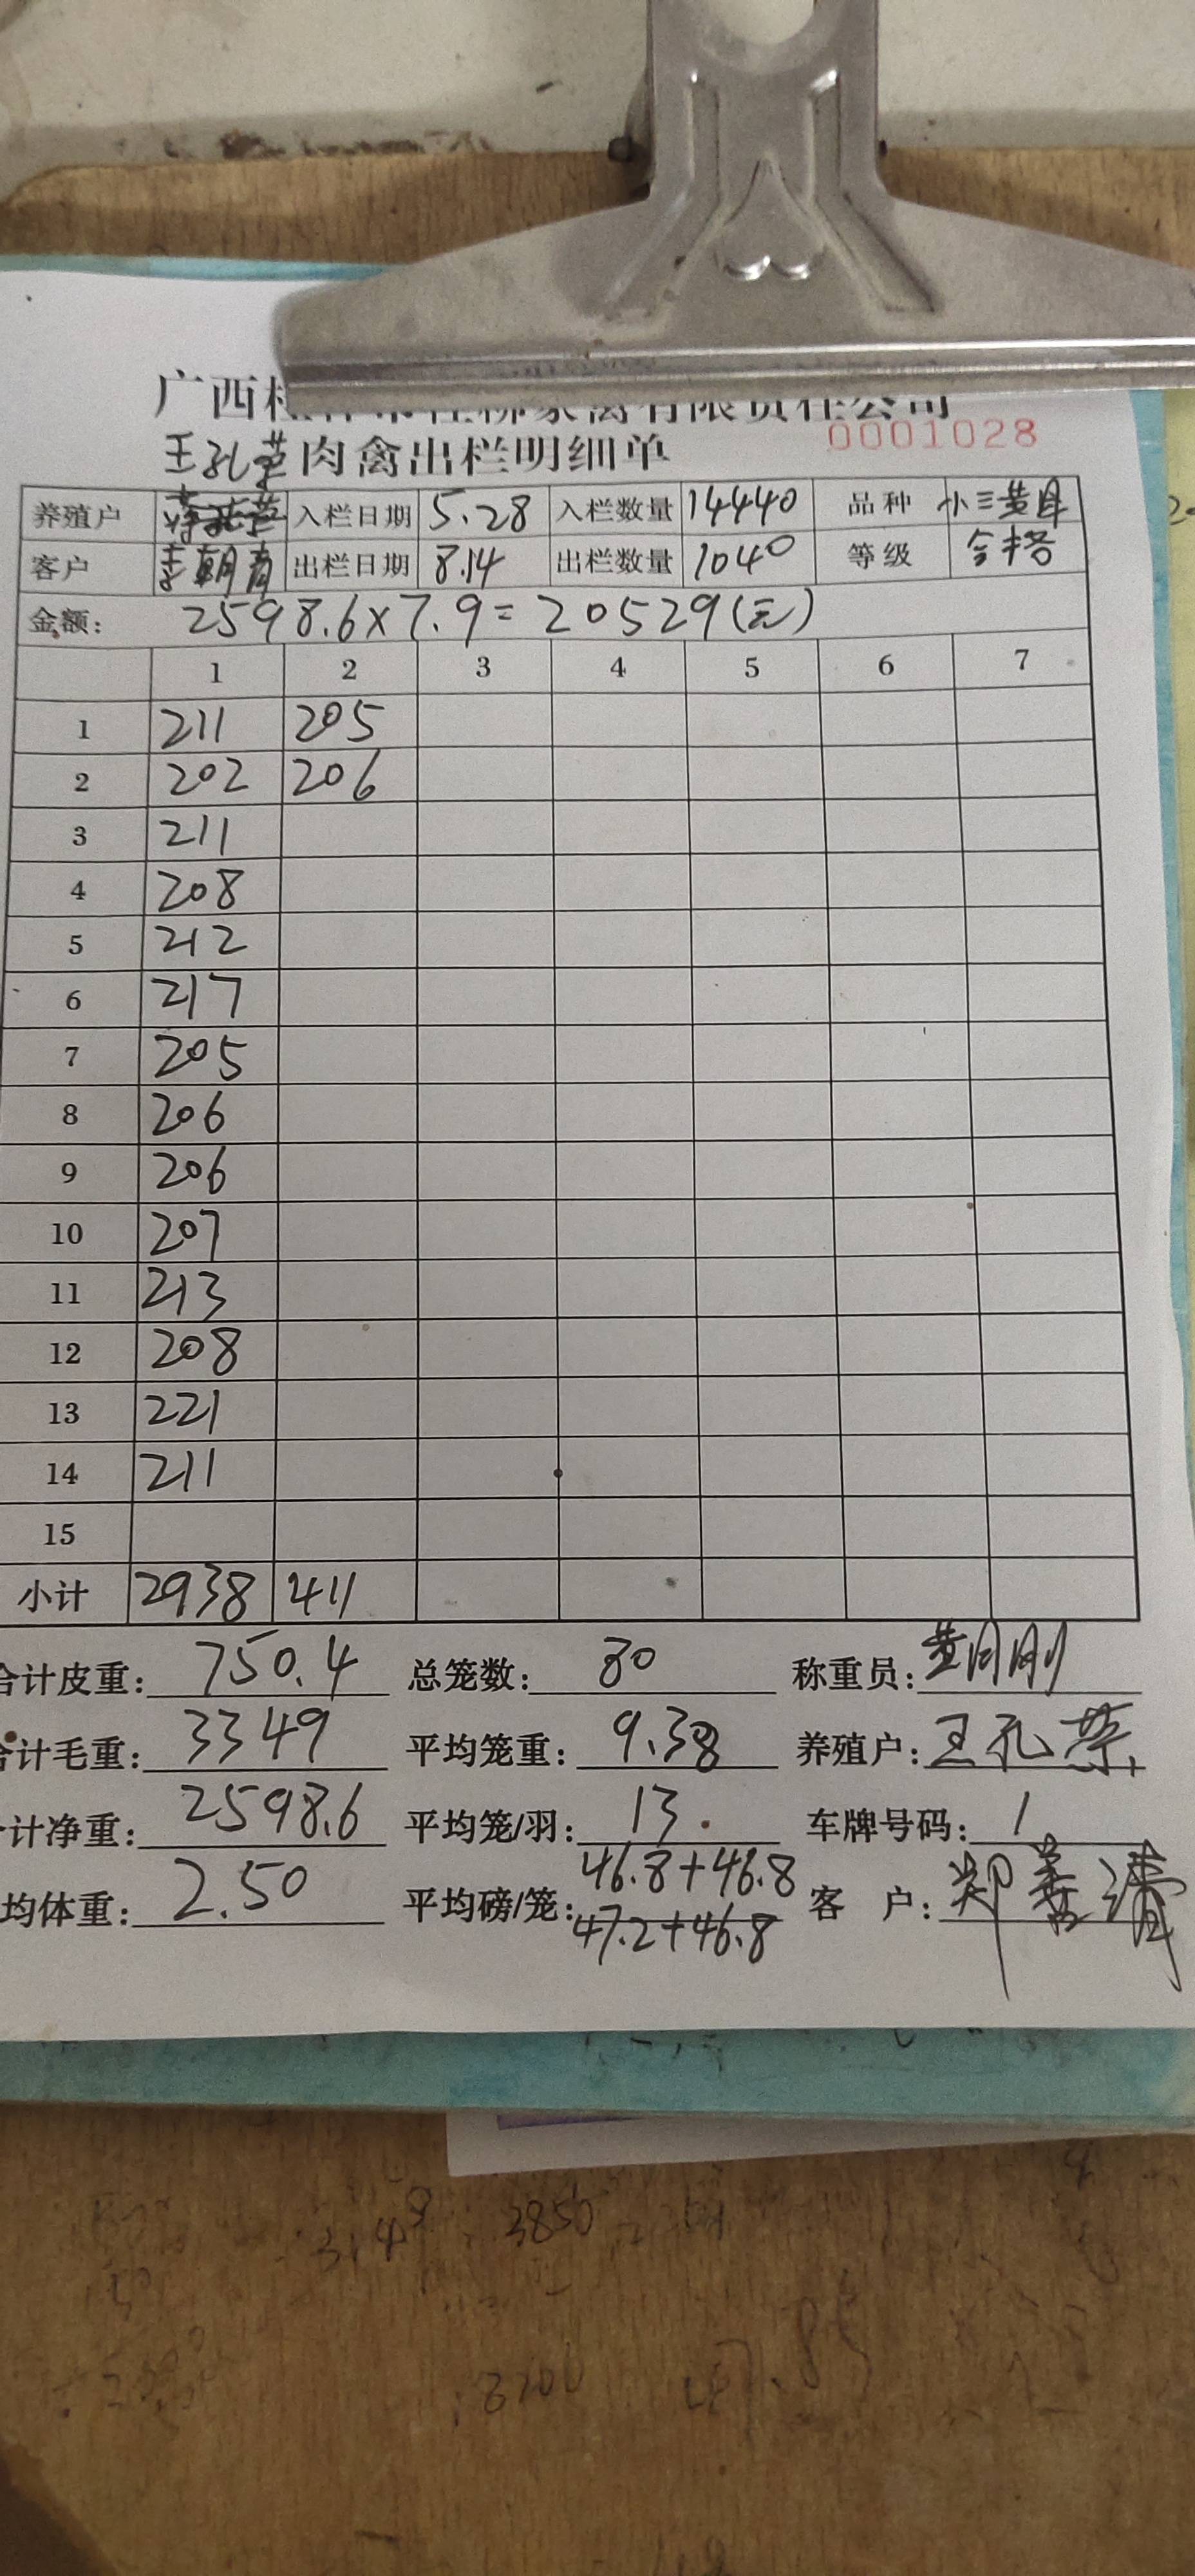 广西
0001028
王孔荣 肉禽出栏明细单
养殖户 入栏日期 5.28 入栏数量 14440 品种 小三黄母
客户 李朝青 出栏日期 8.14 出栏数量 1040 等级 合格
金额: 2598.6×7.9=20529(元)
1 2 3 4 5 6 7
1 211 205
2 202 206
3 211
4 208
5 212
6 217
7 205
8 206
9 206
10 207
11 213
12 208
13 221
14 211
15
小计 2938 411
合计皮重: 750.4 总笼数: 80 称重员: 黄月刚
合计毛重: 3349 平均笼重: 9.38 养殖户: 王孔荣
计净重: 2598.6 平均笼/羽: 13. 车牌号码: 1
均体重: 2.50 平均磅/笼: 46.8+46.8 客 户: 郑善清
47.2+46.8
3850
3200